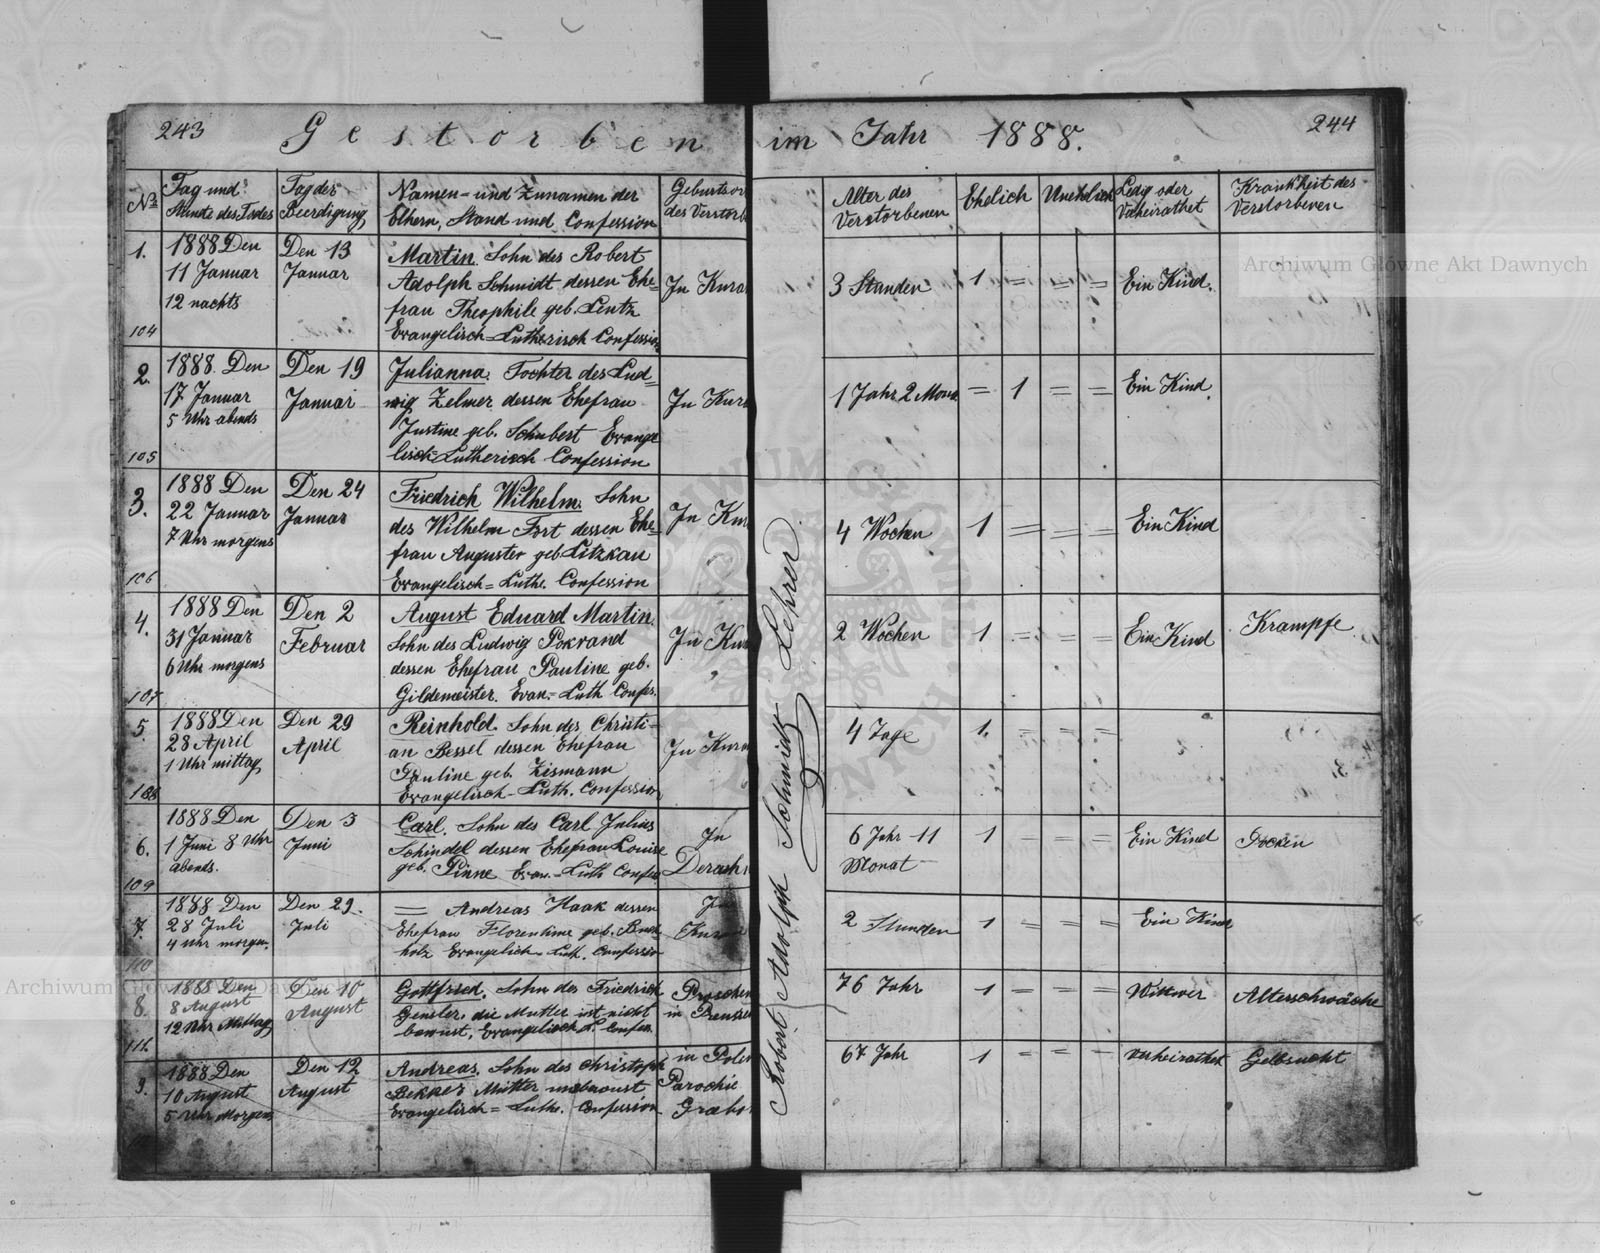 243
Gestorben
Nr.
Tag und
Stunde des Todes
Tag der
Beerdigung
Namen- und Zunamen der
Elhern, Stand und Confession
Geburtsor
des Verstorb
1.
104
1888 Den
11 Januar
12 nachts
Den 13
Januar
Martin. Sohn des Robert
Adolph Schmidt dessen Ehe=
frau Theophile geb. Lentz
Evangelisch=Lutherisch Confession
In Kura
2.
105
1888. Den
17 Januar
5 Uhr abends
Den 19
Januar
Julianna. Tochter des Lud=
wig Zelmer dessen Ehefrau
Justine geb. Schubert Evange
lisch=Lutherisch Confession
In Kura
3.
106
1888 Den
22 Januar
7 Uhr morgens
Den 24
Januar
Friedrich Wilhelm. Sohn
des Wilhelm Fort dessen Ehe=
frau Auguste geb Litzkau
Evangelisch=Luthe. Confession
In Kur
4.
107
1888 Den
31 Januar
6 Uhr morgens
Den 2
Februar
August Eduard Martin
Sohn des Ludwig Pokrand
dessen Ehefrau Pauline geb.
Gildemeister. Evan.=Luth Confes.
In Kur
5.
108
1888 Den
28 April
1 Uhr mittag
Den 29
April
Reinhold. Sohn des Christi=
an Bessel dessen Ehefrau
Pauline geb. Zismann
Evangelisch-Luth. Confession
In Kura
6.
109
1888 Den
1 Juni 8 Uhr
abends.
Den 3
Juni
Carl. Sohn des Carl Julius
Schindel dessen Ehefrau Louise
geb. Pinne Evan.-Luth Confes
In
7.
110
1888 Den
28 Juli
4 Uhr morgen.
Den 29.
Juli
= Andreas Haak dessen
Ehefrau Florentine geb. Buch
holz Evangelich-Luth. Confessio
In
8.
111.
1888 Den
8 August
12 Uhr Mittag
Den 10
August
Gottfried. Sohn des Friedrich
Gensler. die Mutter ist nicht
bewust. Evangelisch L. Confes.
in Preusse
9.
1888 Den
10 August
5 Uhr Morgens
Den 12
August
Andreas. Sohn des Christoph
Bekker Mutter unbewust
Evangelisch=Luthe. Confession
in Polen
Parochie
im Jahr 1888.
244
Alter des
Verstorbenen
Ehelich
Unehelich
Ledig oder
Verheirathet
Krankheit des
Verstorbenen
3 Stunden 1 = = = Ein Kind.
1 Jahr 2 Mona = 1 = = Ein Kind.
4 Wochen 1 = = = Ein Kind
2 Wochen 1 = = = Ein Kind Krampfe
4 Tage 1. = = =
6 Jahr 11
Monat
1 = = = Ein Kind Pocken
2 Stunden 1 = = = Ein Kind
76 Jahr 1 = = = Wittwer Alterschwäche
67 Jahr 1 = = = verheirathet Gelbsucht
Robert Adolph Schmidt Lehrer
Archiwum Główne Akt Dawnych
Archiwum Główne Akt Dawnych